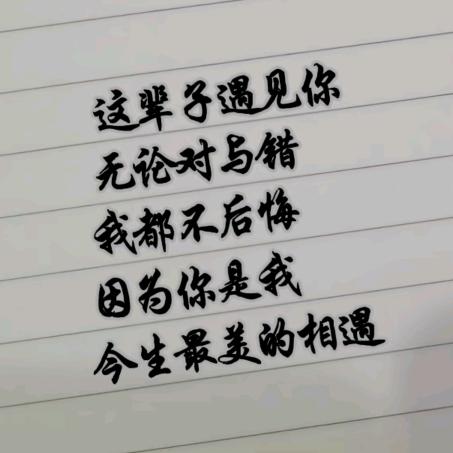 这辈子遇见你
无论对与错
我都不后悔
因为你是我
今生最美的相遇